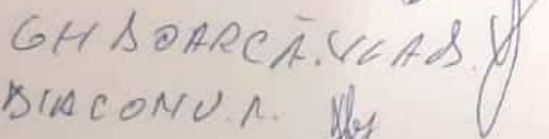 GHBOARCĂ.VLAD.
DIACONU.A.